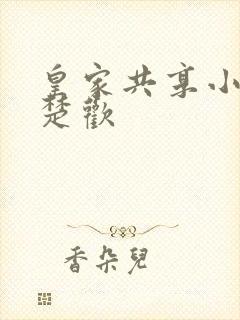 皇家共享小
楚歡
香朵兒